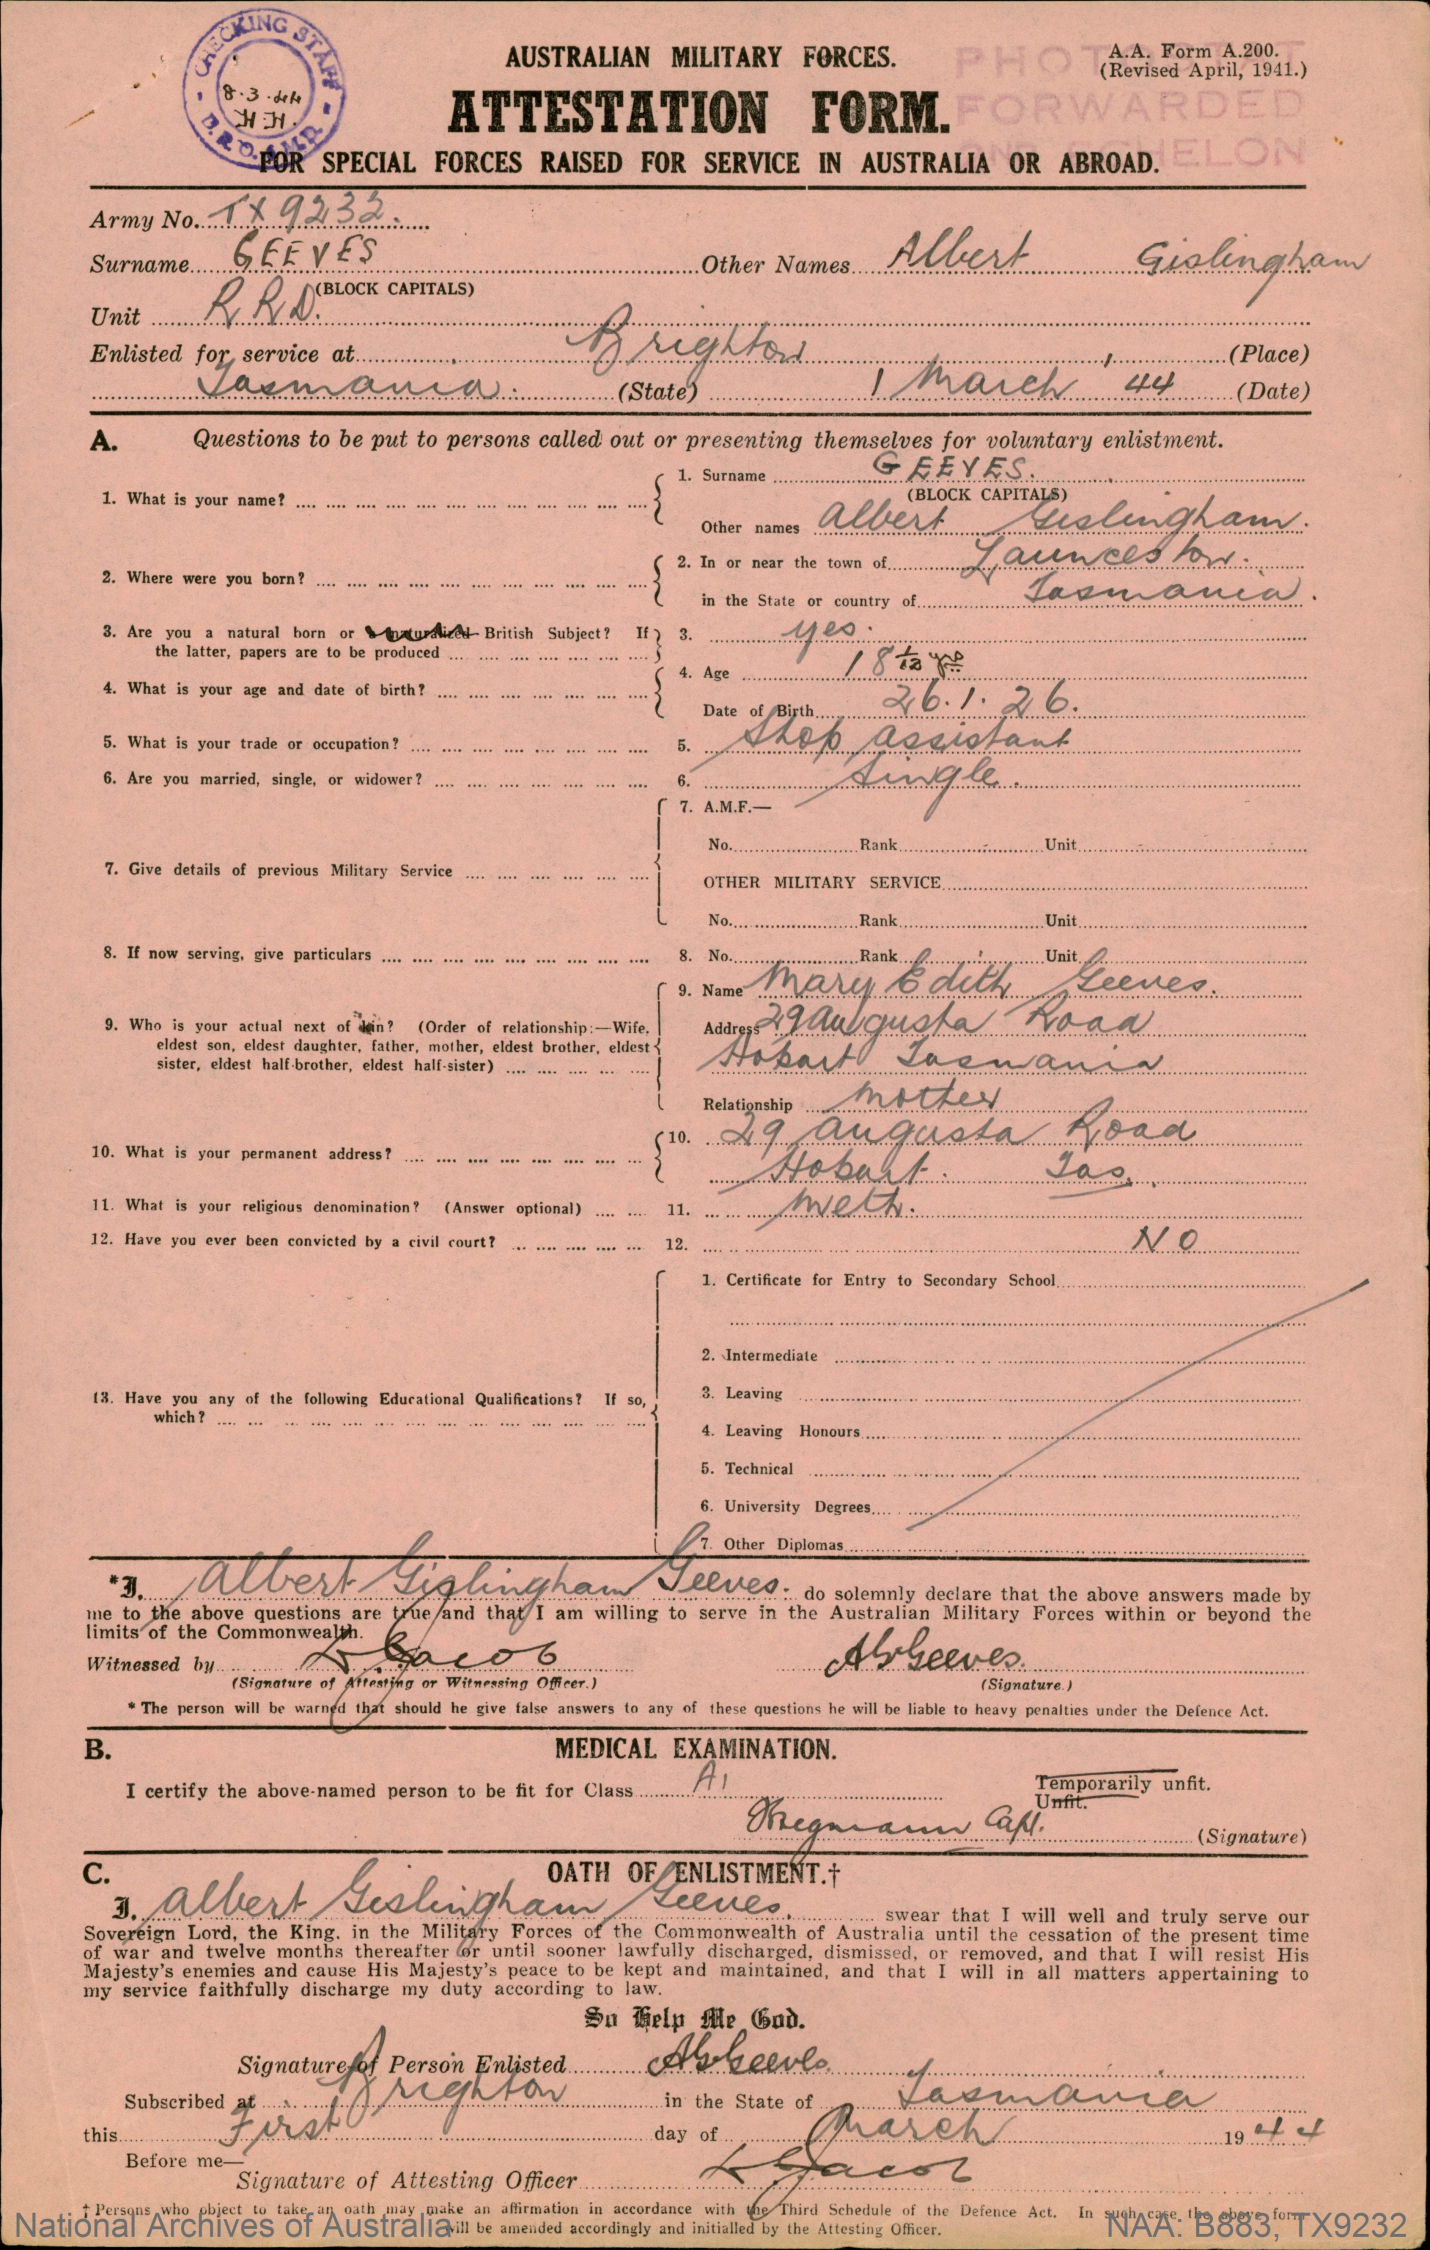 CHECKING STAFF
8.3.44
AUSTRALIAN MILITARY FORCES.
A.A. Form A.200.
(Revised April, 1941.)
ATTESTATION FORM.
FORWARDED
FOR SPECIAL FORCES RAISED FOR SERVICE IN AUSTRALIA OR ABROAD.
Army No. TX9232.
Surname GEEVES Other Names Albert Gislingham
(BLOCK CAPITALS)
Unit R R D.
Enlisted for service at Brighton (Place)
Tasmania. (State) 1 March 44 (Date)
A. Questions to be put to persons called out or presenting themselves for voluntary enlistment.
1. What is your name? 1. Surname GEEVES.
(BLOCK CAPITALS)
Other names Albert Gislingham.
2. Where were you born? 2. In or near the town of Launceston.
in the State or country of Tasmania.
3. Are you a natural born or a naturalized British Subject? If the latter, papers are to be produced 3. yes.
4. What is your age and date of birth? 4. Age 18 1/12 yrs
Date of Birth 26.1.26.
5. What is your trade or occupation? 5. Shop assistant
6. Are you married, single, or widower? 6. Single.
7. Give details of previous Military Service 7. A.M.F.—
No. Rank Unit
OTHER MILITARY SERVICE
No. Rank Unit
8. If now serving, give particulars 8. No. Rank Unit
9. Who is your actual next of kin? (Order of relationship:—Wife, eldest son, eldest daughter, father, mother, eldest brother, eldest sister, eldest half-brother, eldest half-sister) 9. Name Mary Edith Geeves.
Address 29 Augusta Road
Hobart Tasmania
Relationship Mother
10. What is your permanent address? 10. 29 Augusta Road
Hobart. Tas.
11. What is your religious denomination? (Answer optional) 11. Meth.
12. Have you ever been convicted by a civil court? 12. NO
13. Have you any of the following Educational Qualifications? If so, which?
1. Certificate for Entry to Secondary School
2. Intermediate
3. Leaving
4. Leaving Honours
5. Technical
6. University Degrees
7. Other Diplomas
*I, Albert Gislingham Geeves. do solemnly declare that the above answers made by
me to the above questions are true and that I am willing to serve in the Australian Military Forces within or beyond the
limits of the Commonwealth.
Witnessed by L G Jacob AGGeeves.
(Signature of Attesting or Witnessing Officer.) (Signature.)
* The person will be warned that should he give false answers to any of these questions he will be liable to heavy penalties under the Defence Act.
B. MEDICAL EXAMINATION.
I certify the above-named person to be fit for Class A1 Temporarily unfit.
Unfit.
Capt. (Signature)
C. OATH OF ENLISTMENT.†
I, Albert Gislingham Geeves. swear that I will well and truly serve our
Sovereign Lord, the King, in the Military Forces of the Commonwealth of Australia until the cessation of the present time
of war and twelve months thereafter or until sooner lawfully discharged, dismissed, or removed, and that I will resist His
Majesty's enemies and cause His Majesty's peace to be kept and maintained, and that I will in all matters appertaining to
my service faithfully discharge my duty according to law.
So Help Me God.
Signature of Person Enlisted AGGeeves.
Subscribed at Brighton in the State of Tasmania
this First day of March 1944
Before me—
Signature of Attesting Officer L G Jacob
† Persons who object to take an oath may make an affirmation in accordance with the Third Schedule of the Defence Act. In such case the above form
will be amended accordingly and initialled by the Attesting Officer.
National Archives of Australia NAA: B883, TX9232